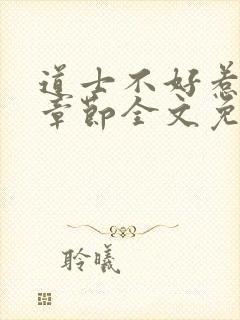 道士不好惹
章节全文免
聆曦